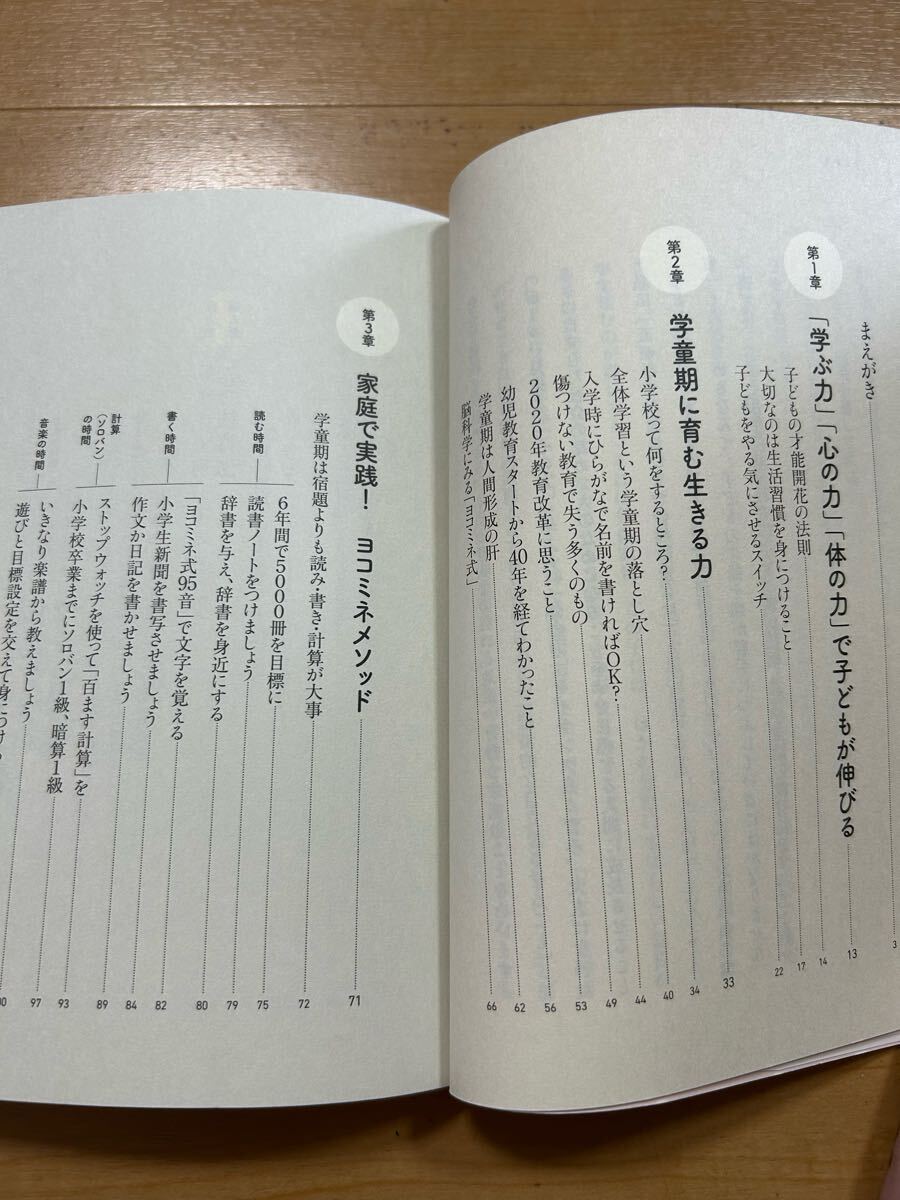 まえがき 3
第1章 「学ぶ力」「心の力」「体の力」で子どもが伸びる 13
子どもの才能開花の法則 14
大切なのは生活習慣を身につけること 17
子どもをやる気にさせるスイッチ 22
第2章 学童期に育む生きる力 33
小学校って何をするところ？ 34
全体学習という学童期の落とし穴 40
入学時にひらがなで名前を書ければOK？ 44
傷つけない教育で失う多くのもの 49
2020年教育改革に思うこと 53
幼児教育スタートから40年を経てわかったこと 56
学童期は人間形成の肝 62
脳科学にみる「ヨコミネ式」 66
第3章 家庭で実践！ ヨコミネメソッド 71
学童期は宿題よりも読み・書き・計算が大事 72
読む時間
6年間で5000冊を目標に 75
読書ノートをつけましょう 79
辞書を与え、辞書を身近にする 80
書く時間
「ヨコミネ式95音」で文字を覚える 82
小学生新聞を書写させましょう 84
作文か日記を書かせましょう 89
計算（ソロバン）の時間
ストップウォッチを使って「百ます計算」を 93
小学校卒業までにソロバン1級、暗算1級 97
音楽の時間
いきなり楽譜から教えましょう
遊びと目標設定を交えて身につけ